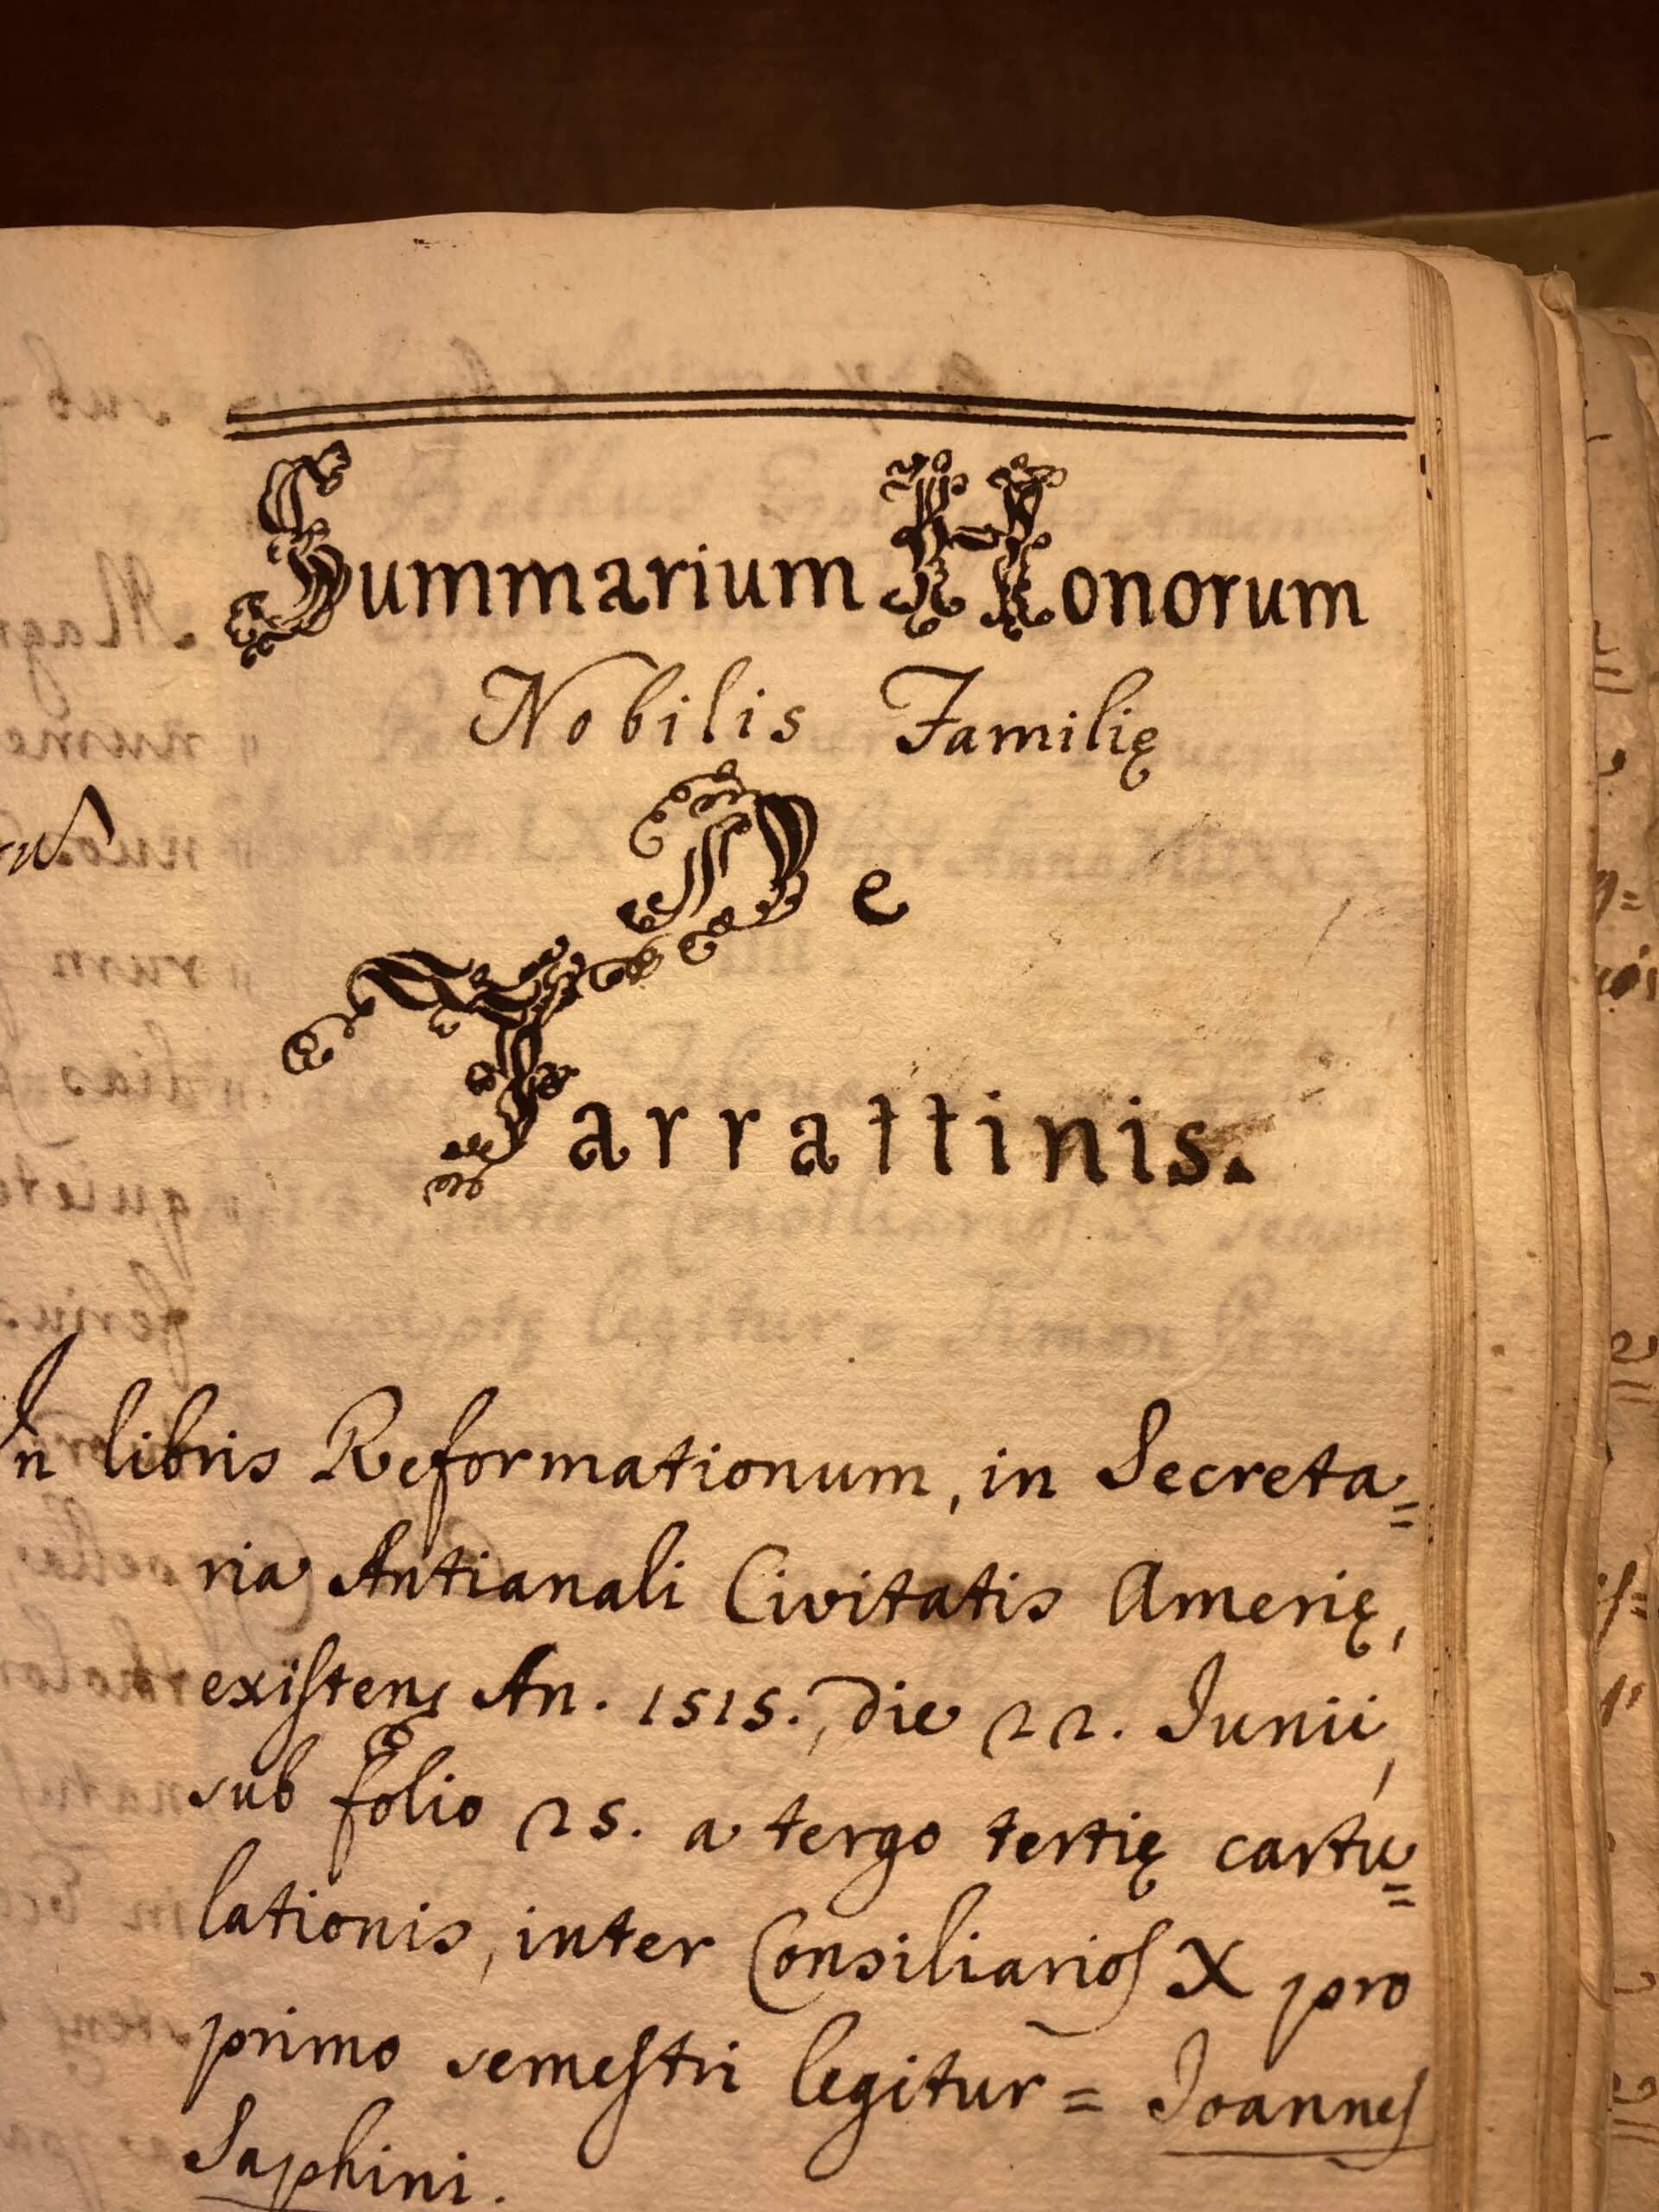 Summarium Honorum
Nobilis Familię
De
Tarrattinis.
In libris Reformationum, in Secreta=
ria Antianali Civitatis Amerię,
exiſtens An. 1515., die 22. Junii,
sub folio 25. a tergo tertię cartu=
lationis, inter Consiliarioſ X pro
primo semeſtri legitur = Joanneſ
Saphini.